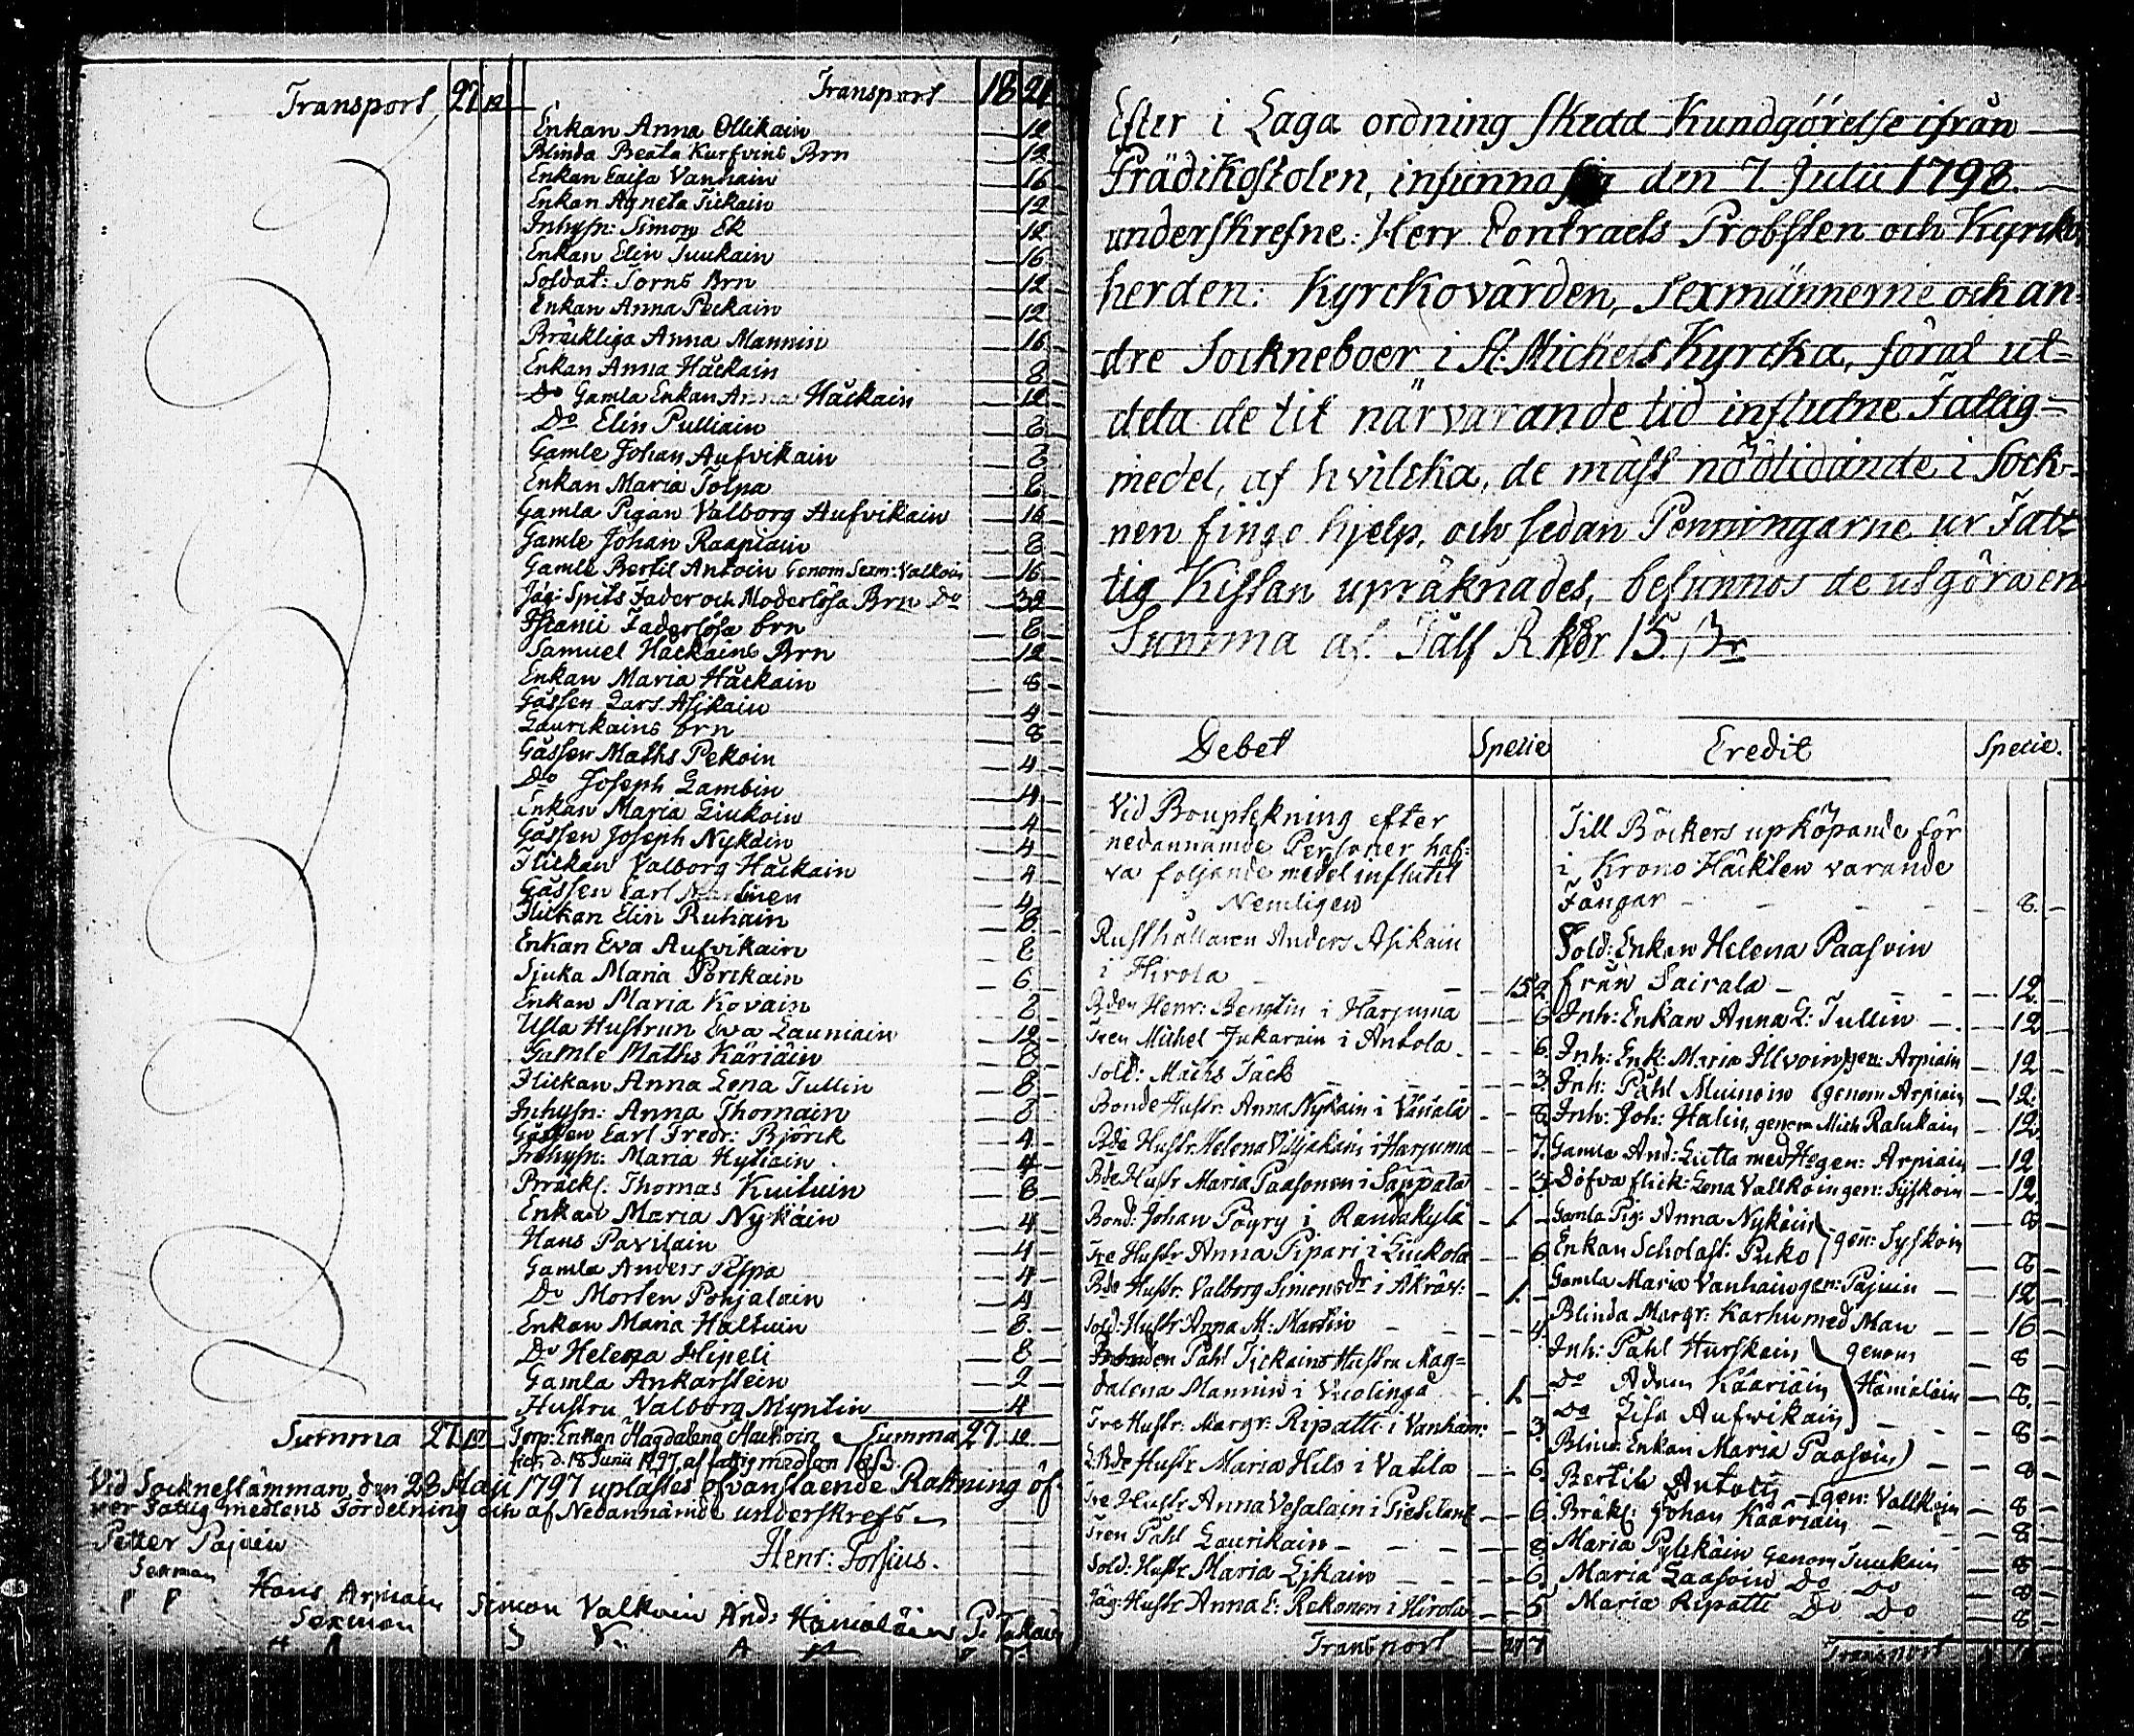 Transport 27 12
Transport 18 21
Enkan Anna Ollikain 12
Blinda Beata Kurfvins Brn 12
Enkan Caisa Vanhain 16
Enkan Agneta Tickain 12
Inhysn: Simon Ek 12
Enkan Elin Juukain 16
Soldat: Torns Brn 12
Enkan Anna Peckain 12
Bräckliga Anna Mannin 16
Enkan Anna Häckain 8
Do Gamla Enkan Anna Häckain 12
Do Elin Pulliain 8
Gamle Johan Aufvikain 8
Enkan Maria Tolpa 8
Gamla Pigan Valborg Aufvikain 16
Gamle Johan Raapiain 8
Gamle Bertil Antoin Genom Sexm: Valkoin 16
Jäg: Spits Fader och Moderlösa Brn Do 32
Faderlösa brn 8
Samuel Häckains Brn 12
Enkan Maria Häckain 8
Gåssen Lars Asikain 4
Laurikains brn 8
Gåssen Maths Pekoin 4
Do Joseph Lambin 4
Enkan Maria Liukoin 4
Gåssen Joseph Nykäin 4
Flickan Valborg Häckain 4
Gåssen Carl 4
Flickan Elin Ruhain 8
Enkan Eva Aufvikain 8
Sjuka Maria Porckain 6
Enkan Maria Kovain 8
Usla Hustrun Eva Launiain 12
Gamle Maths Käriäin 8
Flickan Anna Lena Tullin 8
Inhysn: Anna Thomain 8
Gåssen Carl Fredr: Björck 4
Inhysn: Maria Hytiäin 4
Bräckl. Thomas Kuituin 8
Enkan Maria Nykäin 4
Hans Pavilain 4
Gamla Anders Pespa 4
Do Morten Pohjalain 4
Enkan Maria Haltuin 8
Do Helena Hipeli 8
Gamla Ankarstein 2
Hustru Valborg Myntin 4
Summa 27 12
Torp: Enkan Magdalena Häckoin Summa 27 12
fick d. 18 Junii 1797 af fattigmedlen 16 ß.
Vid Sockneslämman, den 28 Maji 1797 uplästes ofvanstaende Räkning öf-
ver Fattig medlens Fördelning och af Nedannämde underskrefs.
Petter Pajuin
Sexman
P P
Henr: Forsius.
Hans Arpiain
Sexman
H A
Simon Valkoin
S V
And: Hämäläin
A H
Efter i Laga ordning skedd Kundgörelse ifrån
Prädikostolen, infunno sig den 7. Julii 1798.
underskrefne: Herr Contracts Probsten och Kyrcko
herden: Kyrckovärden, Sexmännerne och an-
dre Sockneboer i St: Michels Kyrcka, föratt ut-
dela de til närvarande tid influtne Fattig-
medel, af hvilcka, de mäst nödlidande i Sock-
nen fingo hjelp, och sedan Penningarne ur Fat-
tig Kistan upräknades, befunnos de utgöra en
Summa af Tålf R kdr 15.
Debet Specie
Vid Boupteckning efter
nedannämde Personer haf-
va följande medel influtit
Nemligen
Rusthållaren Anders Asikain
i Hirola 1 52
Bden Henr: Bengtin i Harjuma 6
Tren Michel Jukarain i Antola 6
Sold: Maths Täck 3
Bonde Hustr: Anna Nykäin i Vänälä 8
Bde Hustr Helena Viljakain i Harjuma 7
Bde Hustr Maria Paasonen i Säppälä 3
Bond: Johan Pöyry i Randakylä 1
Tre Hustr Anna Pipari i Liuckola 6
Bde Hustr. Valborg Simonsdr i Åkräv: 1
Sold: Hustr Anna M: Martin 4
Bonden Påhl Tickains Hustru Mag-
dalena Mannin i Vuolinga 1
Tre Hustr: Margr: Ripatti i Vanham: 3
Bde Hustr Maria Hils i Vatila 6
Tre Hustr Anna Vesalain i 6
Tren Påhl Laurikain 8
Sold: Hustr Maria Ejkain 6
Jäg: Hustr Anna E: Rekonen i Hirola 5
Transport
Credit Specie.
Till Böckers upköpande för
i Krono Häcktet varande
Fångar 8
Sold: Enkan Helena Paasoin
från Sairala 12
Inh: Enkan Anna L: Tullin 12
Inh: Enk: Maria Illvoin gen: Arpiain 12
Inh: Påhl Muinoin genom Arpiain 12
Inh: Joh: Halin, genom Mich Rahikain 12
Gamla And: Lutta med H gen: Arpiain 12
Döfva flick: Lena Vallkoin gen: Syskoin 12
Gamla Pig: Anna Nykäin 8
Enkan Scholast: Puko gen: Syskoin 8
Gamla Maria Vanhain gen: Pajuin 12
Blinda Margr: Karhu med Man 16
Inh: Påhl Hurskain genom 8
Do Adam Kääriäin Hämäläin 8
Do Lisa Aufvikain 8
Blind: Enkan Maria Paasoin 8
Bertil Antoin gen: Vallkoin 8
Bräkl: Johan Kääriäin 8
Maria Pylckäin Genom Juukain 8
Maria Laasoin Do Do 8
Maria Ripatti Do Do 8
Transport